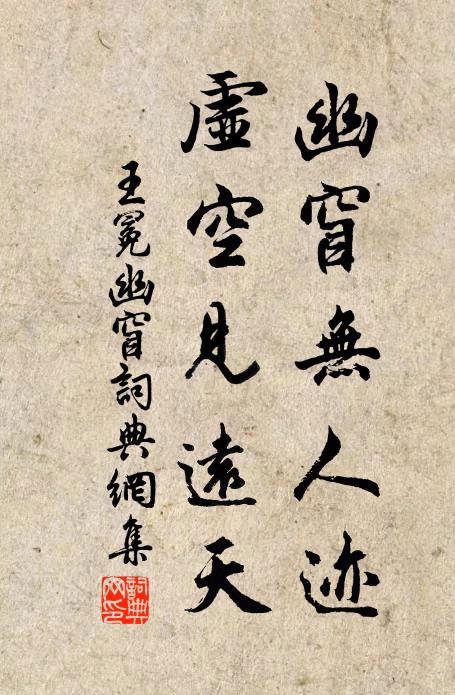 幽窅無人迹
虛空見遠天
王冕幽窅詞典網集
詞典网印